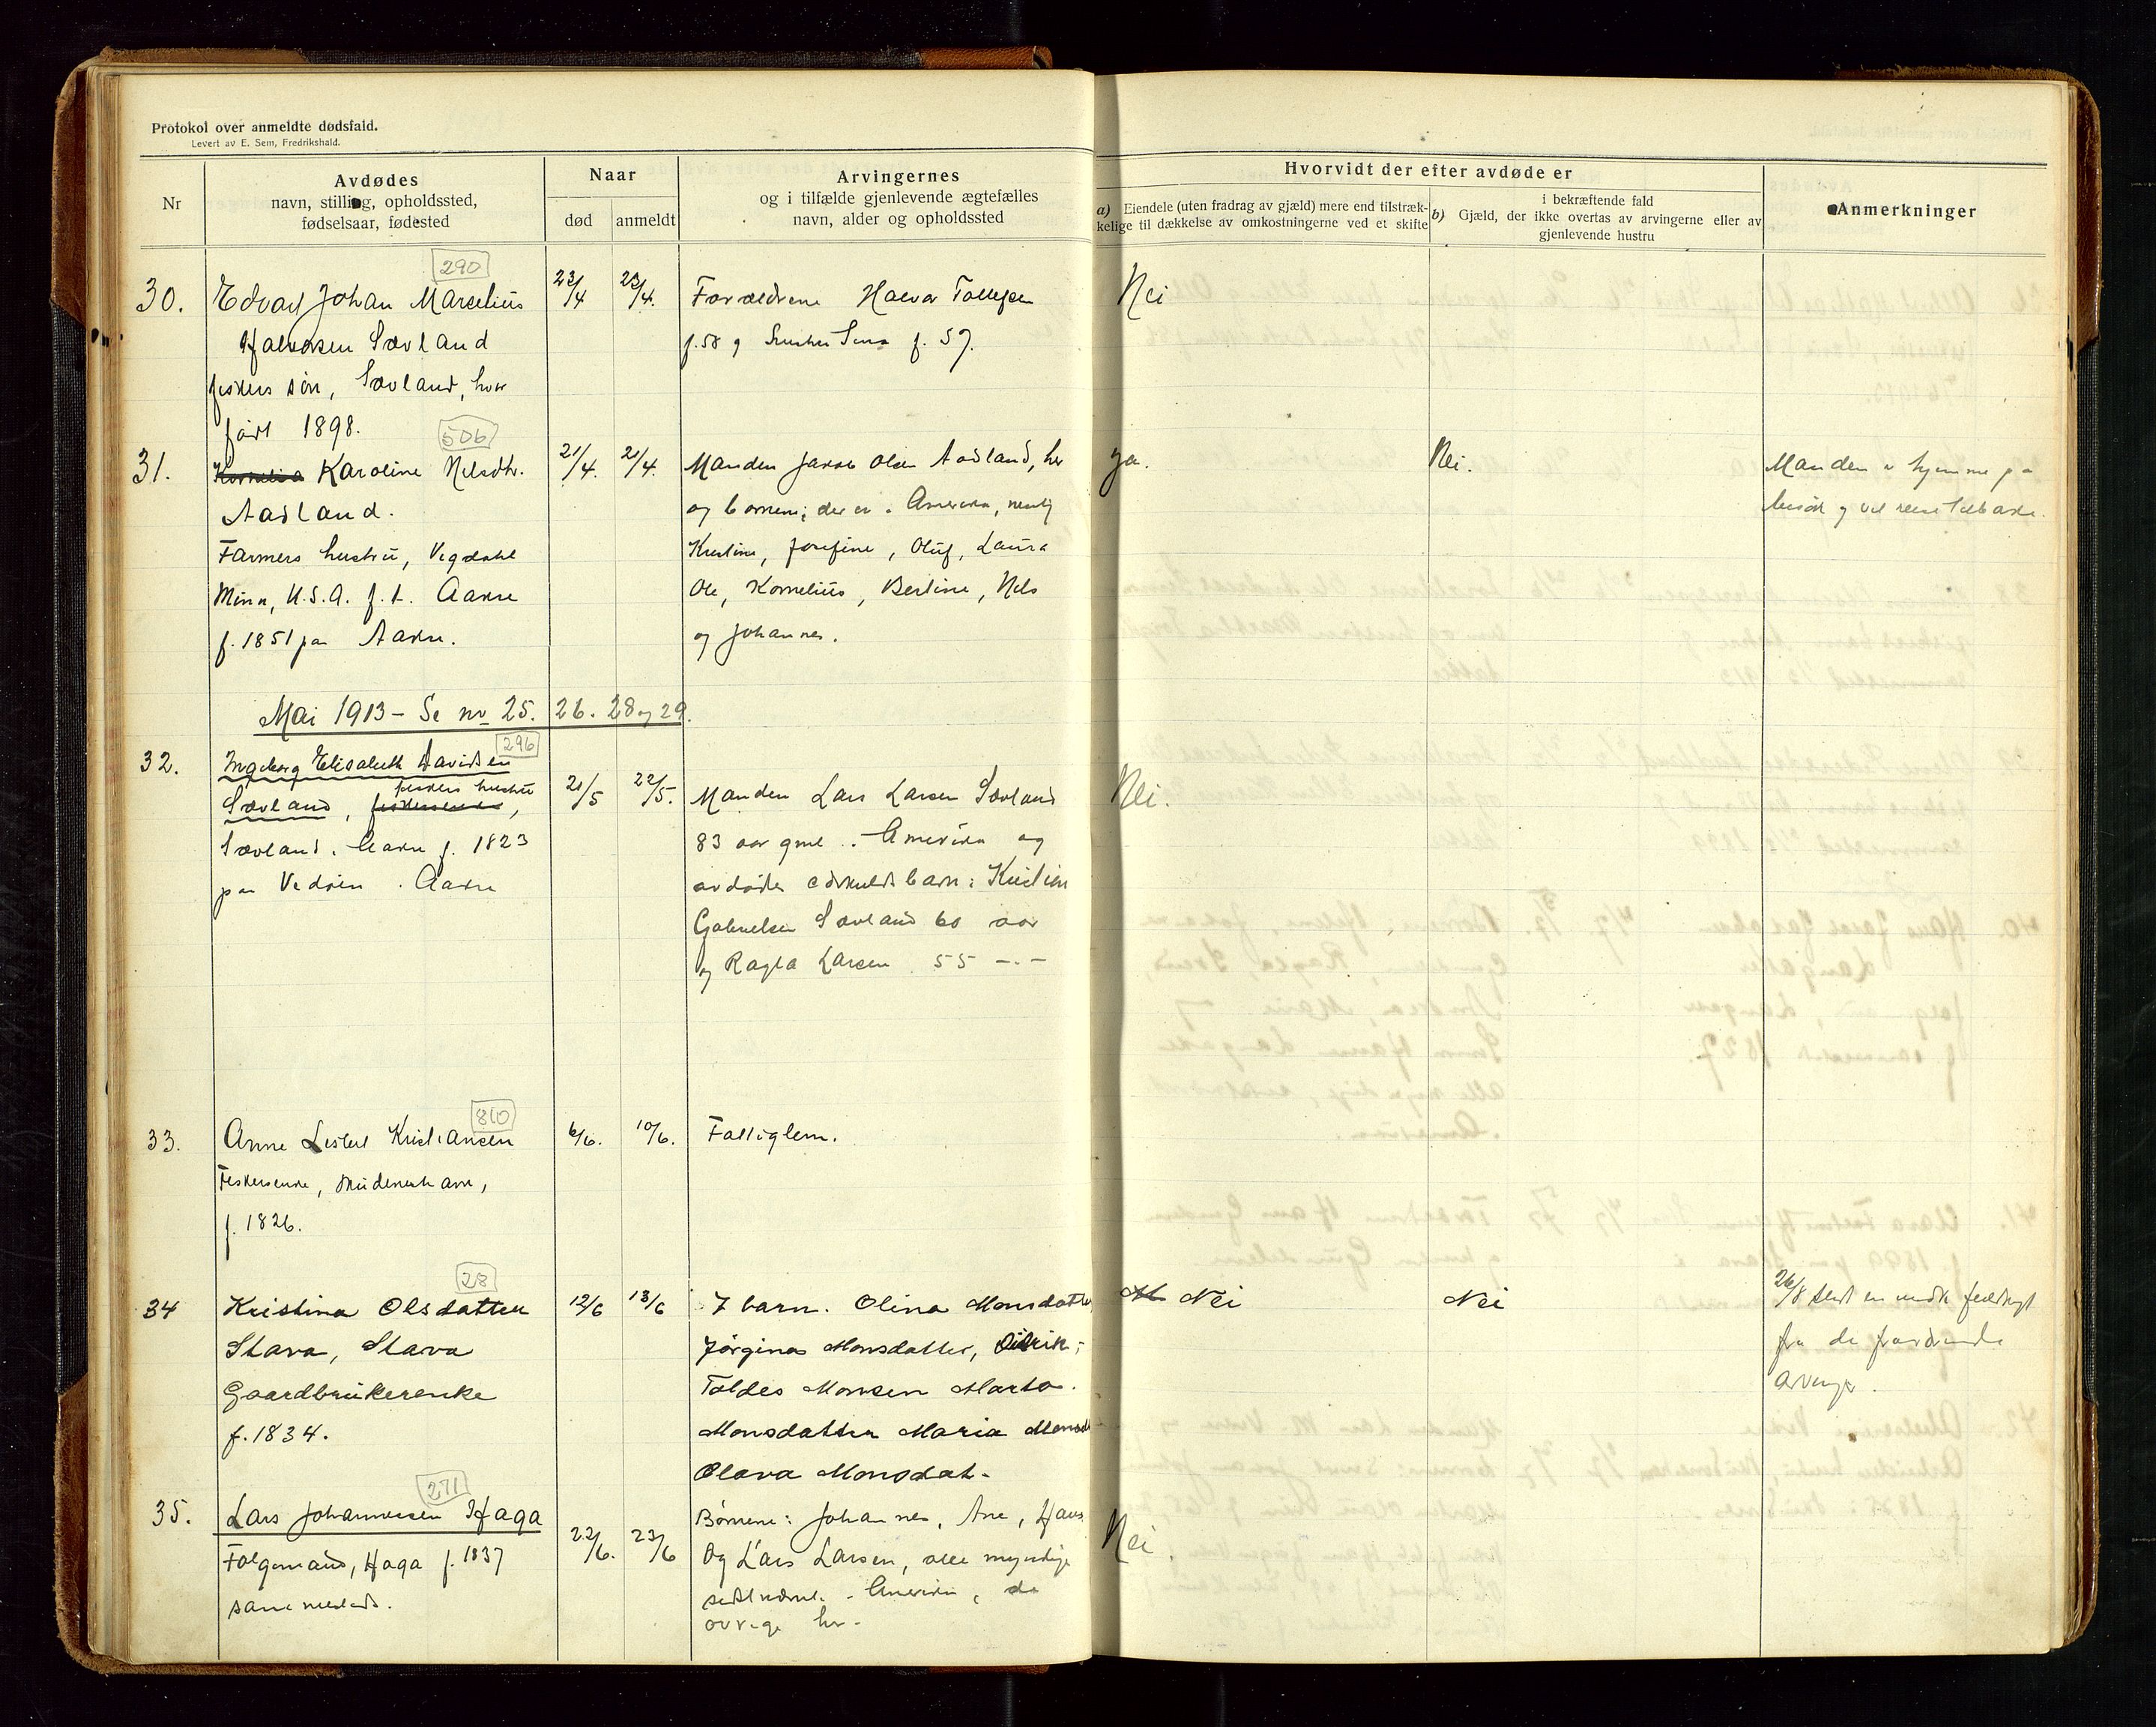 Protokol over anmeldte dødsfald.
Levert av E. Sem, Fredrikshald.
Nr
Avdødes
navn, stilling, opholdssted,
fødselsaar, fødested
Naar
død
anmeldt
Arvingernes
og i tilfælde gjenlevende ægtefælles
navn, alder og opholdssted
Hvorvidt der efter avdøde er
a) Eiendele (uten fradrag av gjæld) mere end tilstræk-
kelige til dækkelse av omkostningerne ved et skifte
i bekræftende fald
b) Gjæld, der ikke overtas av arvingerne eller av
gjenlevende hustru
Anmerkninger
290
30. Edvart Johan Marselius
Halvorsen Sævland
fiskers søn, Sævland, hvor
født 1898.
23/4
23/4.
Forældrene Halvor Tollefsen
f. 58 og hustru f. 57.
Nei
506
31. Kornelia Karoline Nelsdtr.
Aadland.
Farmers hustru, Vegdahl
Minn, U.S.A. f. t. Aakre
f. 1851 paa Aakre.
21/4.
21/4.
Manden Jakob Olsen Aadland, her
og børnene; der er i Amerika, nemlig
Kristine, Josefine, Oluf, Laura
Ole, Kornelius, Bertine, Nels
og Johannes.
ja.
Nei.
Manden er hjemme pa
besøk og vil reise tilbake.
Mai 1913 - Se nr 25. 26. 28 og 29.
296
32. Ingeborg Elisabeth Davidsen
fiskers hustru
Sævland, fiskerenke,
Sævland i Aakre f. 1823
paa Vedøen i Aakre
21/5
22/5.
Manden Lars Larsen Sævland
83 aar gml i Amerika og
avdødes særkuldsbarn: Kristian
Gabrielsen Sævland 60 aar
og Ragla Larsen 55 -.-
Nei.
810
33. Anne Lisbet Kristiansen
Fiskerenke, Skudeneshavn,
f. 1826.
6/6.
10/6.
Fattiglem.
28
34 Kristina Olsdatter
Stava, Stava
Gaardbrukerenke
f. 1834.
12/6
13/6
7 barn. Olina Monsdatter
Jørgina Monsdatter, Didrik,
Toldes Monsen Marta
Monsdatter Maria Monsd
Olava Monsdat-
Nei
Nei
26/8 en
fra de
arvinger.
271
35. Lars Johannessen Haga
Følgemand, Haga f. 1837
sammesteds.
22/6.
23/6
Børnene: Johannes, Ane, Hans
Og Lars Larsen, alle myndige
sidstnævnte i Amerika, de
øvrige her.
Nei.